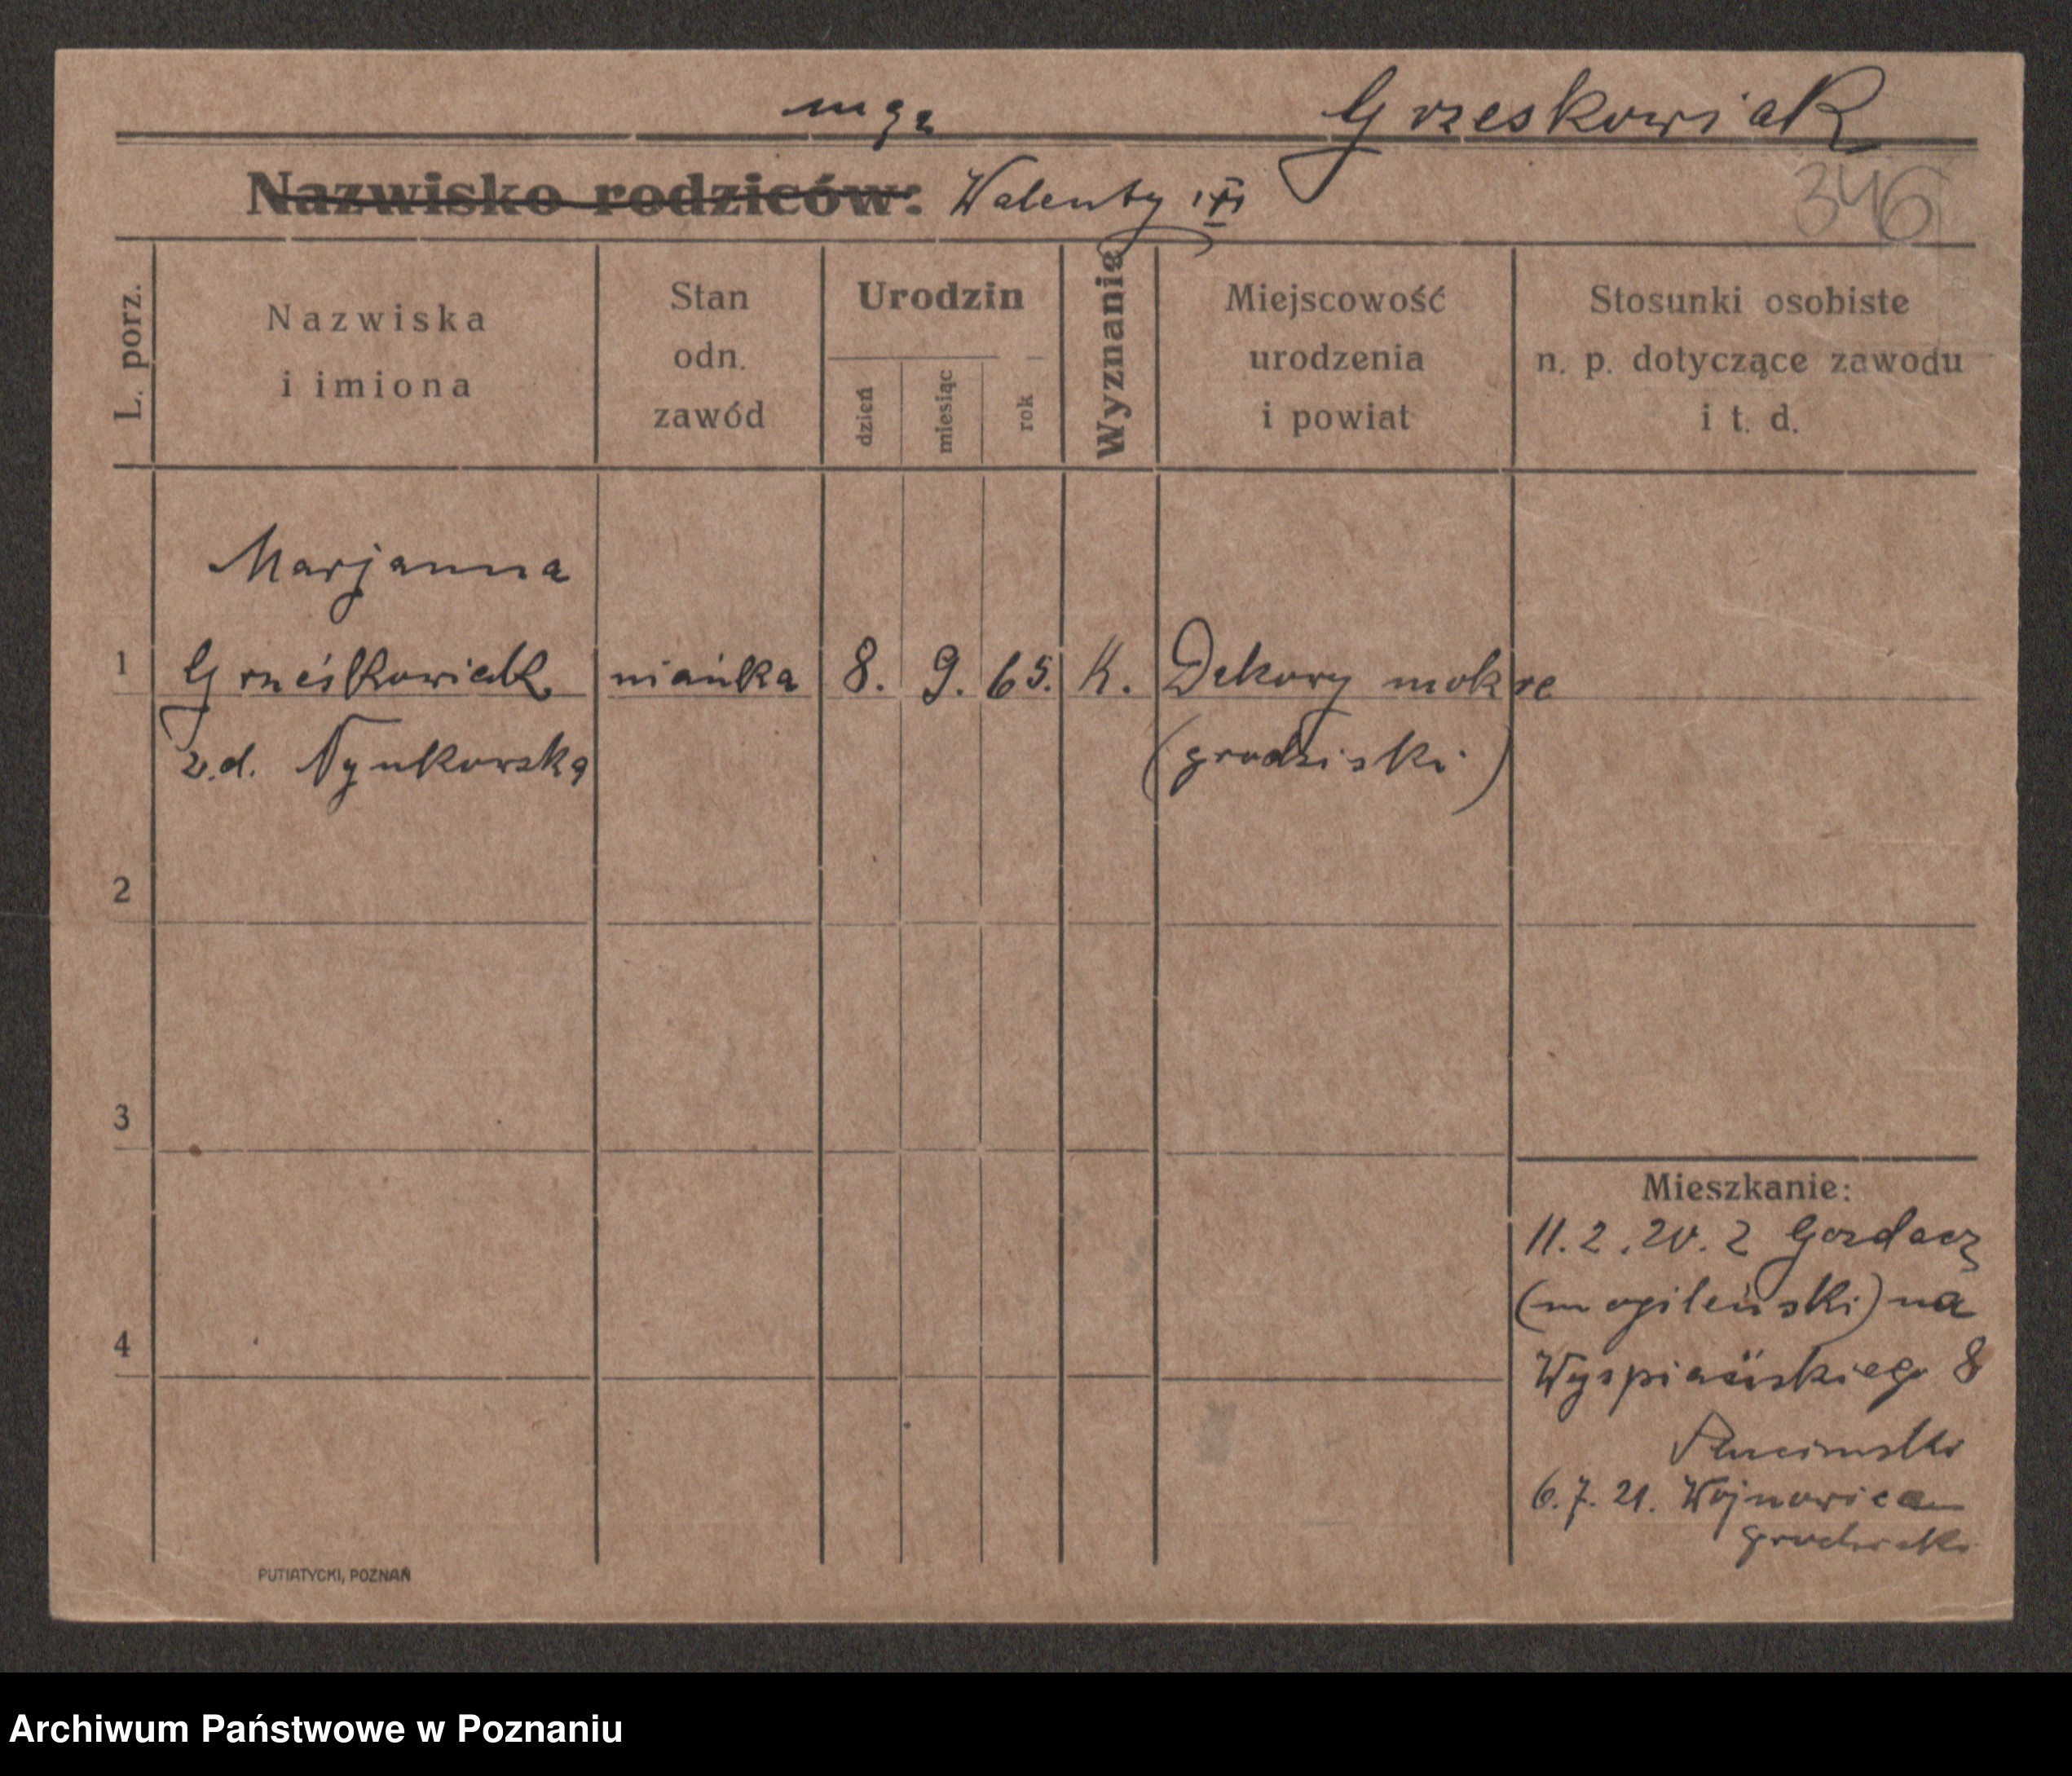 Grzeskowiak
Nazwisko rodziców: Walenty
346
L. porz.
Nazwiska
i imiona
Stan
odn.
zawód
Urodzin
dzień
miesiąc
rok
Wyznanie
Miejscowość
urodzenia
i powiat
Stosunki osobiste
n. p. dotyczące zawodu
i t. d.
Marjanna
1 Grześkowiak niańka 8. 9. 65. K. Dekowy mokre
z.d. Nynkowska (grodziski)
2
3
4
Mieszkanie:
11.2.20. z Gozdacz
(mogileński) na
Wyspiańskiego 8
6.7.21. Wojnowice
grodziski
PUTIATYCKI, POZNAŃ
Archiwum Państwowe w Poznaniu